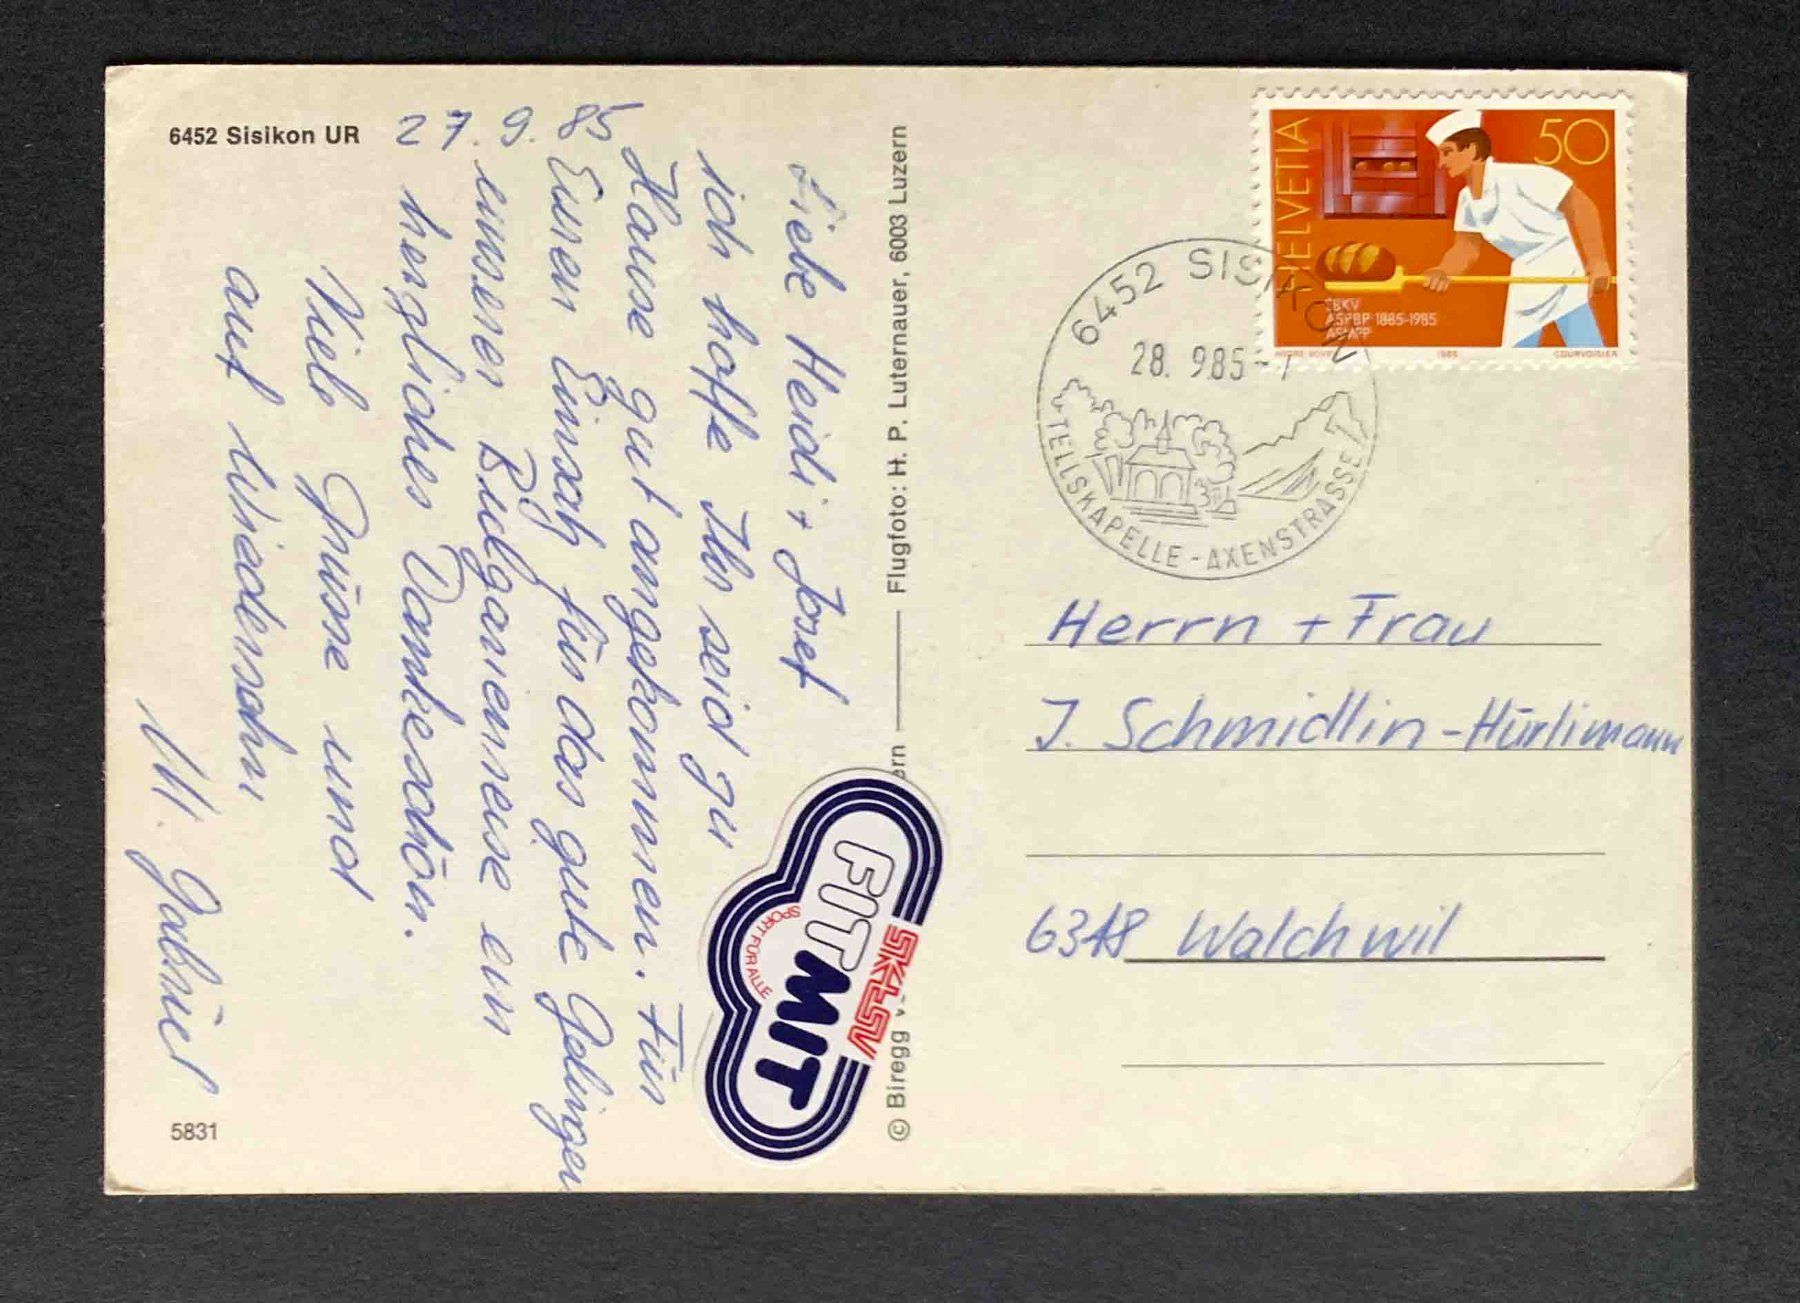 6452 Sisikon UR
27. 9. 85
Liebe Heidi + Josef
ich hoffe Ihr seid zu
Hause gut angekommen. Für
Euren Einsatz für das gute Gelingen
unserer Bulgarienreise ein
herzliches Dankeschön.
Viele Grüsse und
auf Wiedersehn
M. Gabriel
5831
Flugfoto: H. P. Luternauer, 6003 Luzern
© Biregg ern
FIT MIT
SPORT FÜR ALLE
SKLSV
HELVETIA
50
SBKV
ASPBP 1885-1985
ASMPP
1985
COURVOISIER
6452 SISIKON
28. 9.85
TELLSKAPELLE - AXENSTRASSE
Herrn + Frau
J. Schmidlin-Hürlimann
6318 Walchwil